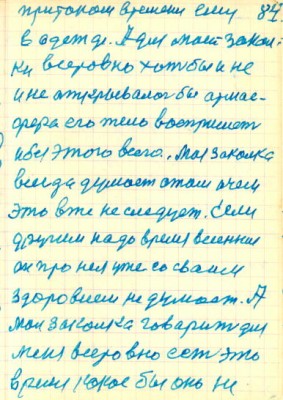 притоком времени ему 84
в одежде. А для моей закол-
ки всеровно хотябы и не
и не открывалось бы атмос-
фера его тело воспримет
и без этого всего. Моя заколка
всегда думает о том о чем
это вже не следует. Если
другием надо время весенния
он про нея уже со своем
здоровием не думает. А
моя заколка говарит для
меня всеровно есть это
время какое бы оно не